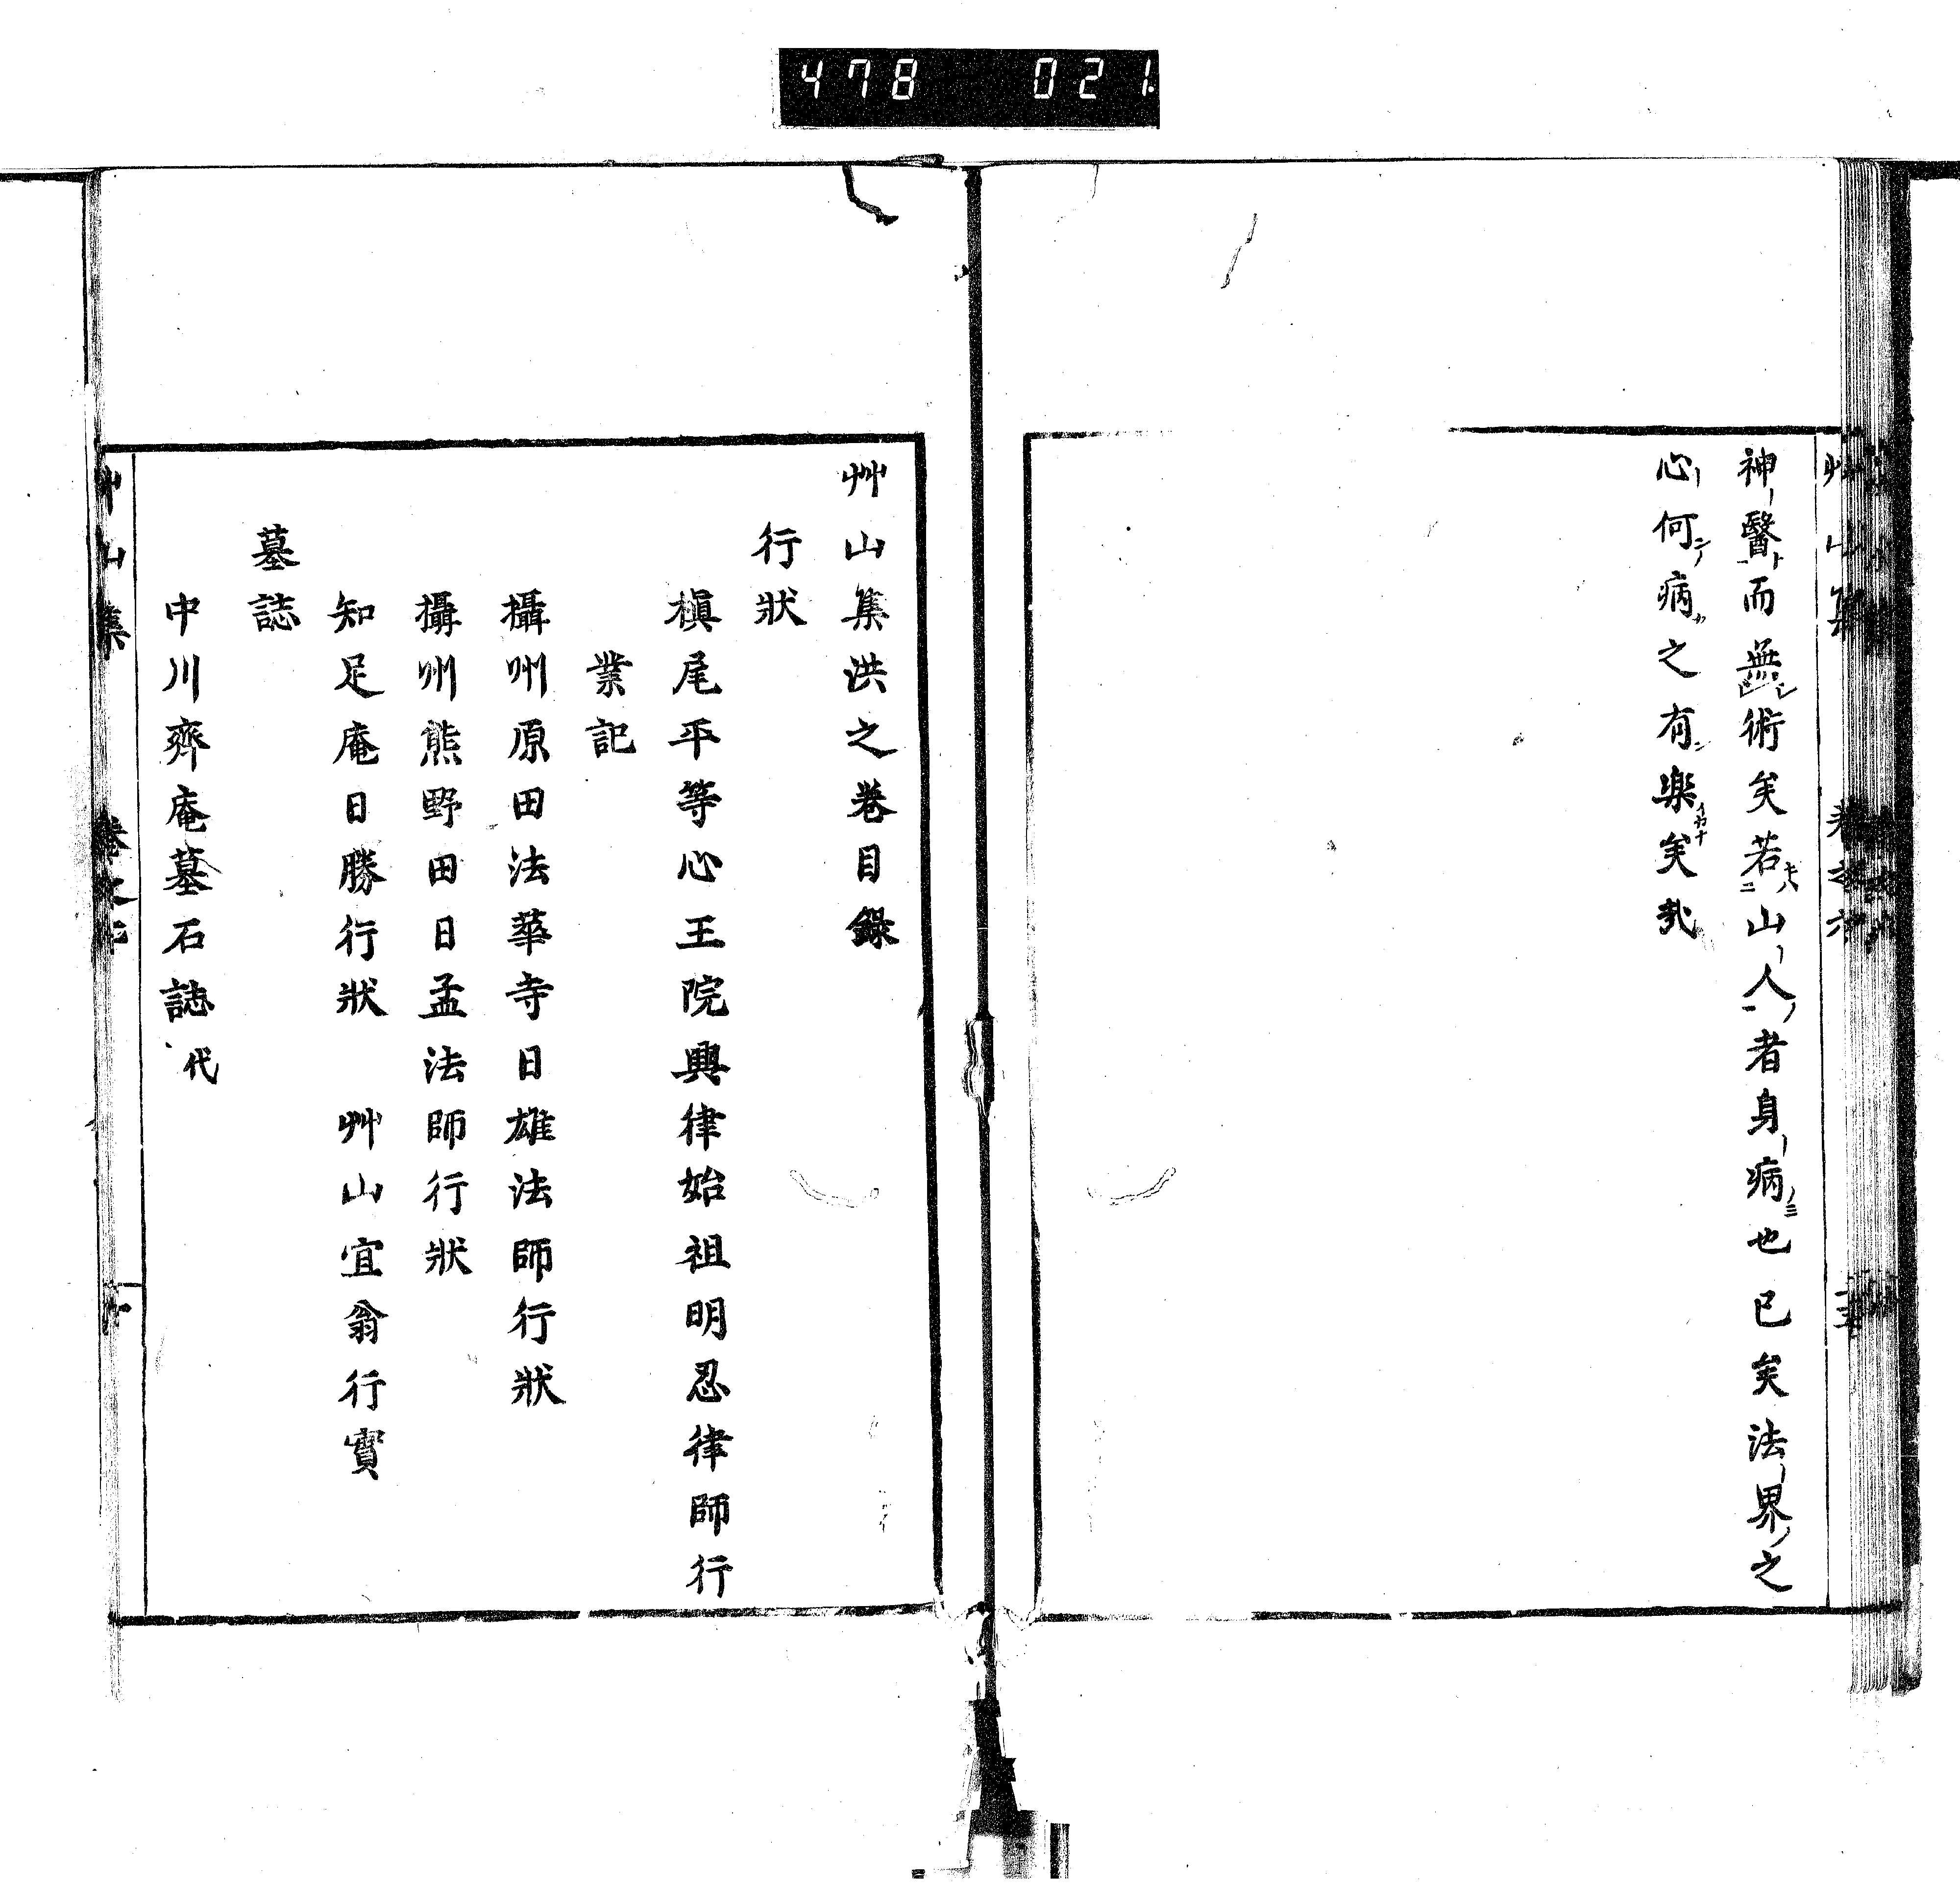 478 021
神醫而無術矣若山人者身病也已矣法界之
心何病之有樂矣哉
艸山集洪之卷目錄
行狀
槇尾平等心王院興律始祖明忍律師行
業記
攝州原田法華寺日雄法師行狀
攝州熊野田日孟法師行狀
知足庵日勝行狀　艸山宜翁行實
墓誌
中川齊庵墓石誌 代